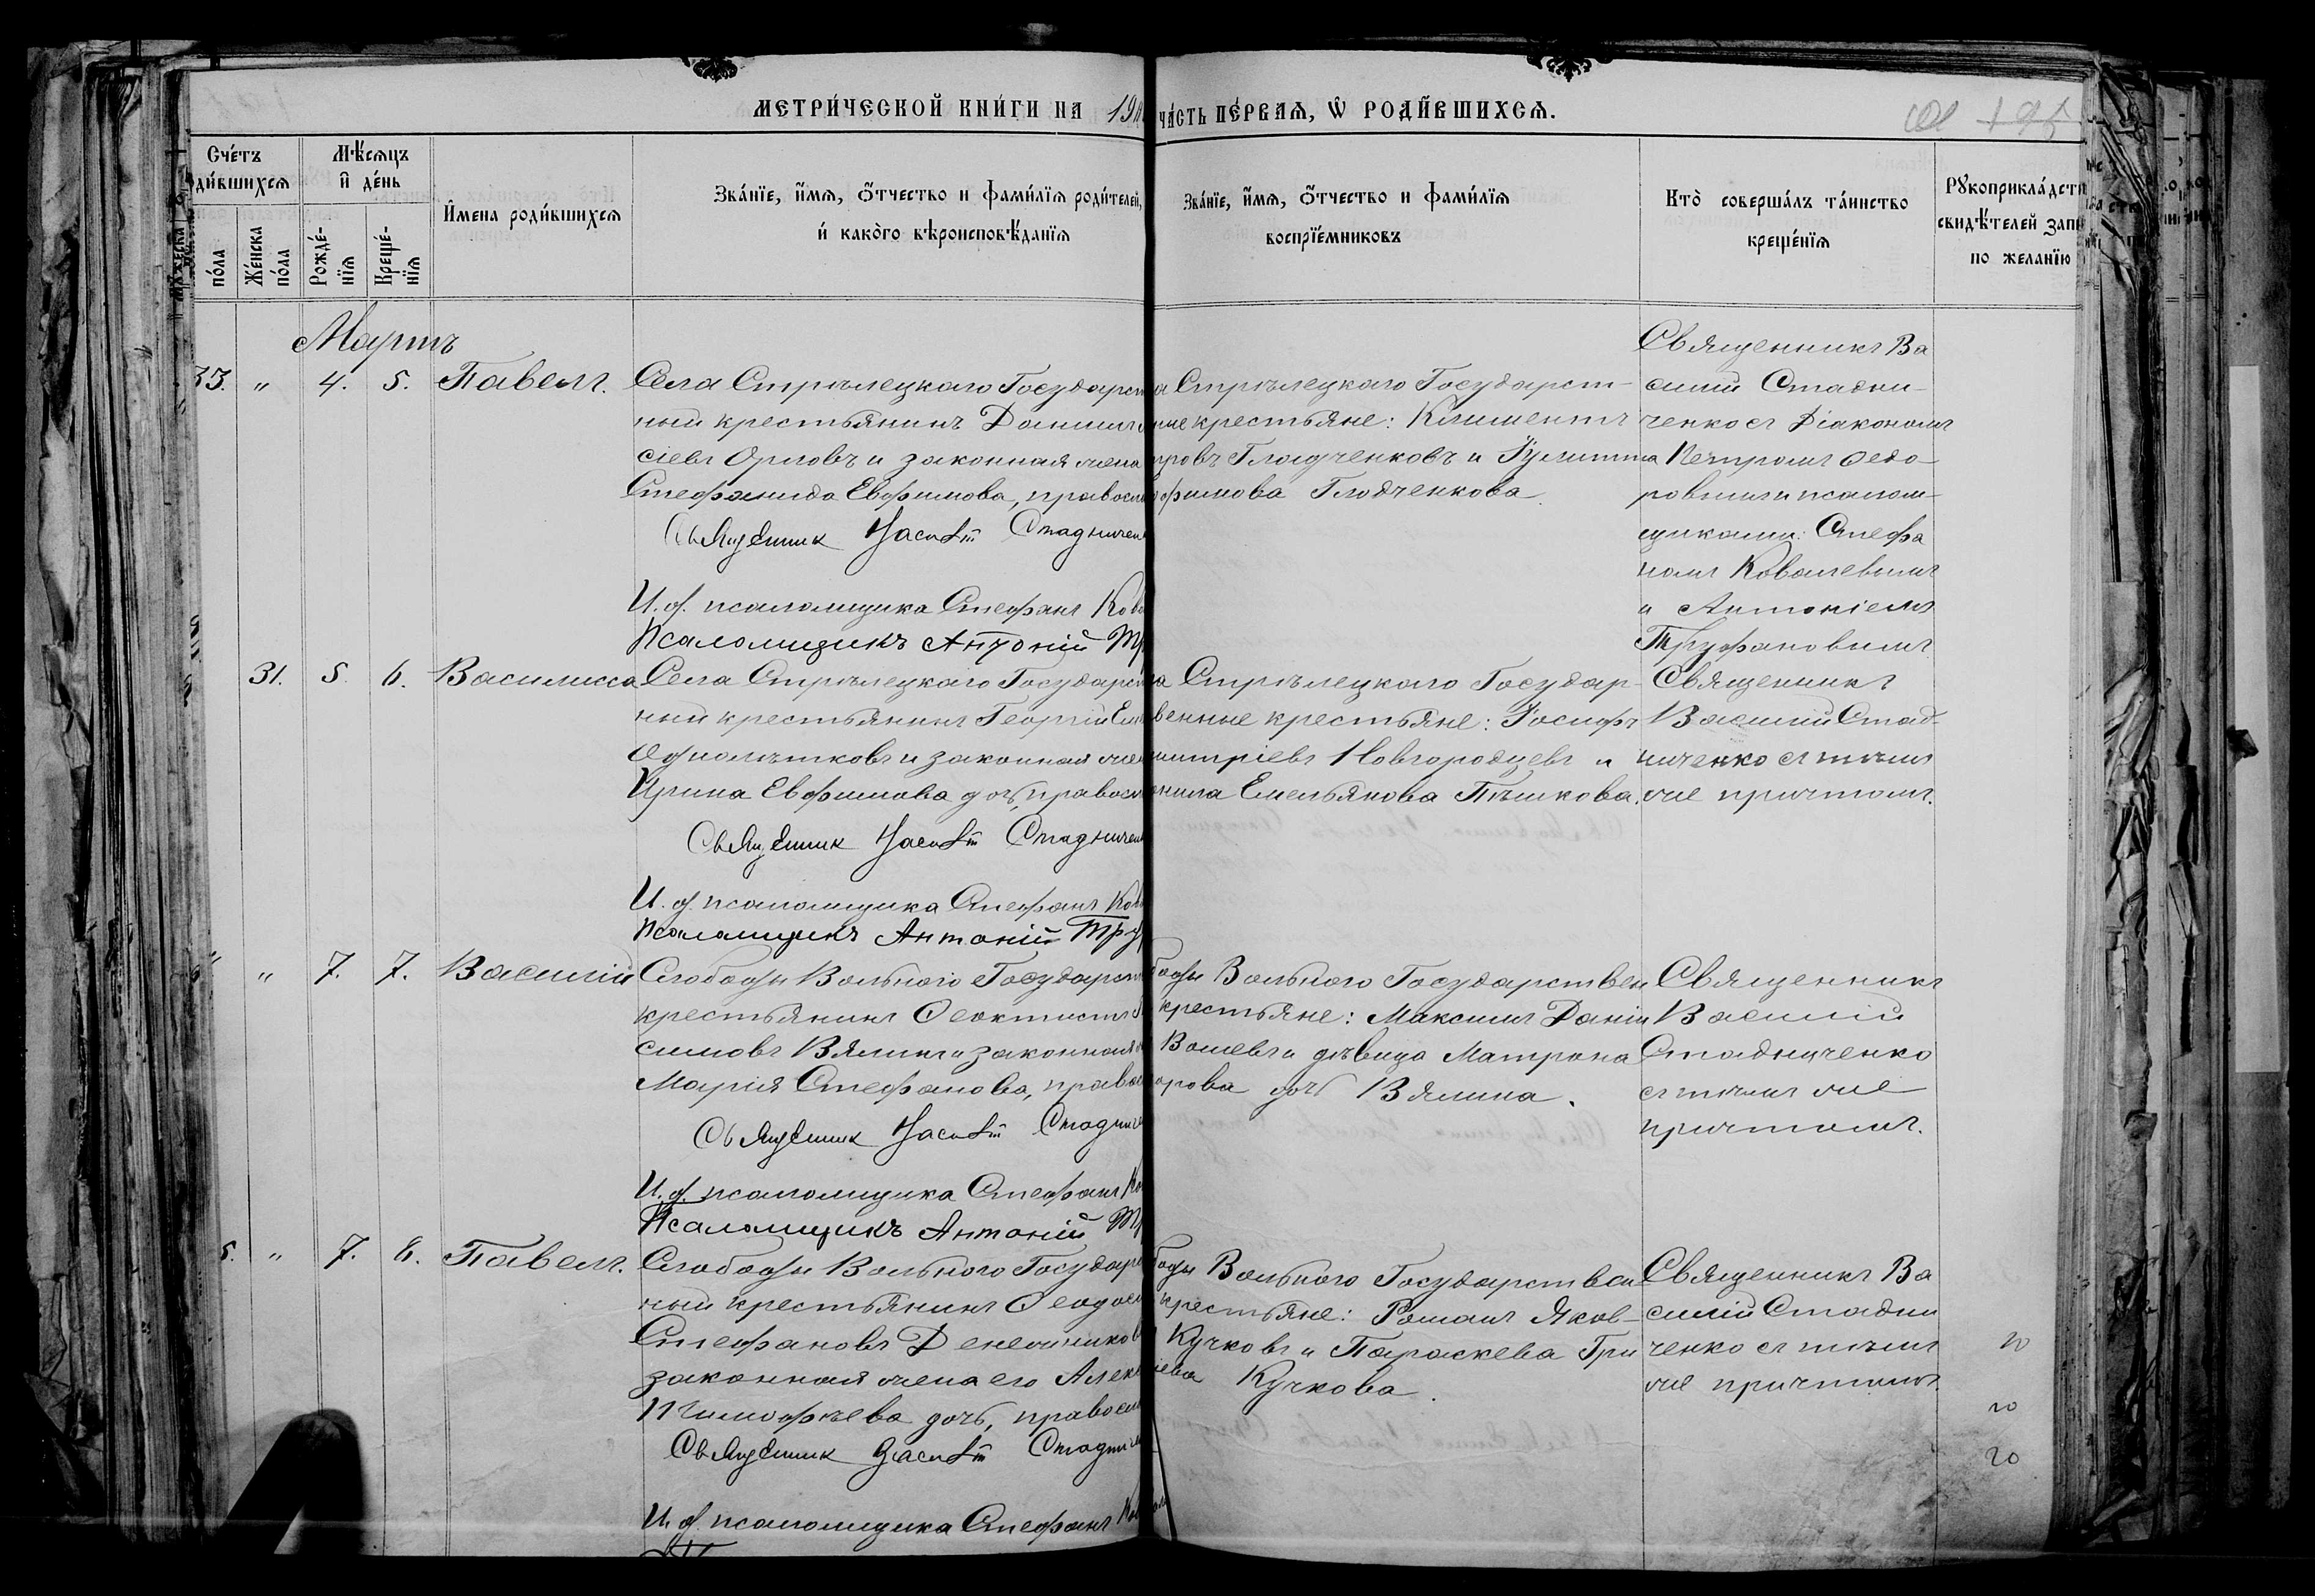 МЕТРИ́ЧЕСКОЙ КНИ́ГИ НА 19
ЧА́СТЬ ПЕ́РВАЯ, Ѡ҆ РОДИ́ВШИХСЯ.
Сче́тъ
ди́вшихся
Мѣ́сяцъ
и҆ де́нь
И҆мена роди́вшихся
Зва́нїе, и҆́мя, ѻ҆́тчество и фами́лїя роди́телей,
и҆ како́го вѣроисповѣ́данїя
Зва́нїе, и҆́мя, ѻ҆́тчество и фами́лїя
воспрїе́мниковъ
Кто̀ соверша́лъ та́инство
креще́нїя
Рꙋкоприкла́дст
свидѣ́телей запи
по желанїю
по́ла
Же́нска
по́ла
Рожде́-
нїя
Креще́-
нїя
Мартъ
33. " 4. 5. Павелъ.
Села Стрѣлецкаго Государст
ный крестьянинъ Даніилъ
сіевъ Орловъ и законная жена
Стефанида Евфимова, правосл
Священник Василій Стадничен
И. д. псаломщика Стефанъ Ков
Псаломщикъ Антоній Тр
а Стрѣлецкаго Государст-
ные крестьяне: Климентъ
тровъ Гладченковъ и Іулитта
фимова Гладченкова
Священникъ Ва
силій Стадни-
ченко съ Діакономъ
Петромъ Ѳедо-
ровымъ и псалом-
щиками: Стефа
номъ Ковалевымъ
и Антоніемъ
Труфановымъ
31. 5. 6. Василисса
Села Стрѣлецкаго Государст
ный крестьянинъ Георгій Ем
и законная жен
Ирина Евфимова дочь, правосл
Священник Василій Стадничен
И. д. псаломщика Стефанъ Ков
Псаломщикъ Антоній Тру
а Стрѣлецкаго Государ-
венные крестьяне: Іосифъ
митріевъ Новгородцевъ и
Емельянова Пѣшкова.
Священникъ
Василій Стад-
ниченко съ тѣмъ
же причтомъ.
" 7. 7. Василій
Слободы Вольного Государст
крестьянинъ Ѳеоктистъ
симовъ Вялинъ и законная
Марія Стефанова, правос
Священник Василій Стаднич
И. д. псаломщика Стефанъ Ко
Псаломщикъ Антоній Тр
боды Вольного Государствен
крестьяне: Максимъ Даніи
Валевъ и дѣвица Матрона
орова дочь Вялина.
Священникъ
Василій
Стадниченко
съ тѣмъ же
причтомъ.
5. " 7. 8. Павелъ.
Слободы Вольного Государс
ный крестьянинъ Ѳеодос
Стефановъ Денежников
законная жена его Алек
Тимофѣева дочь, правосл
Священник Василій Стаднич
И. д. псаломщика Стефанъ Ков
боды Вольного Государствен
крестьяне: Романъ Яков-
Кучковъ и Параскева Гри
іева Кучкова.
Священникъ Ва
силій Стадни
ченко съ тѣмъ
же причтомъ.
20
20
20